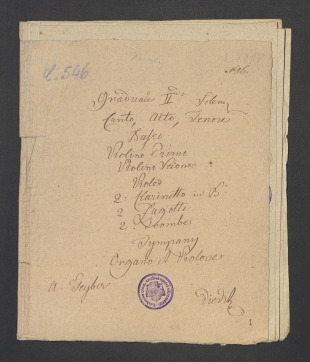 A. 546
No. 6.
Graduale II do Solem
Canto, Alto, Tenore
Basso
Violino Primo
Violino Secone
Viola
2: Clarinetto in B
2 Fagotti
2: Trombe
Tympany
Organo et Violone
a. Teyber
1